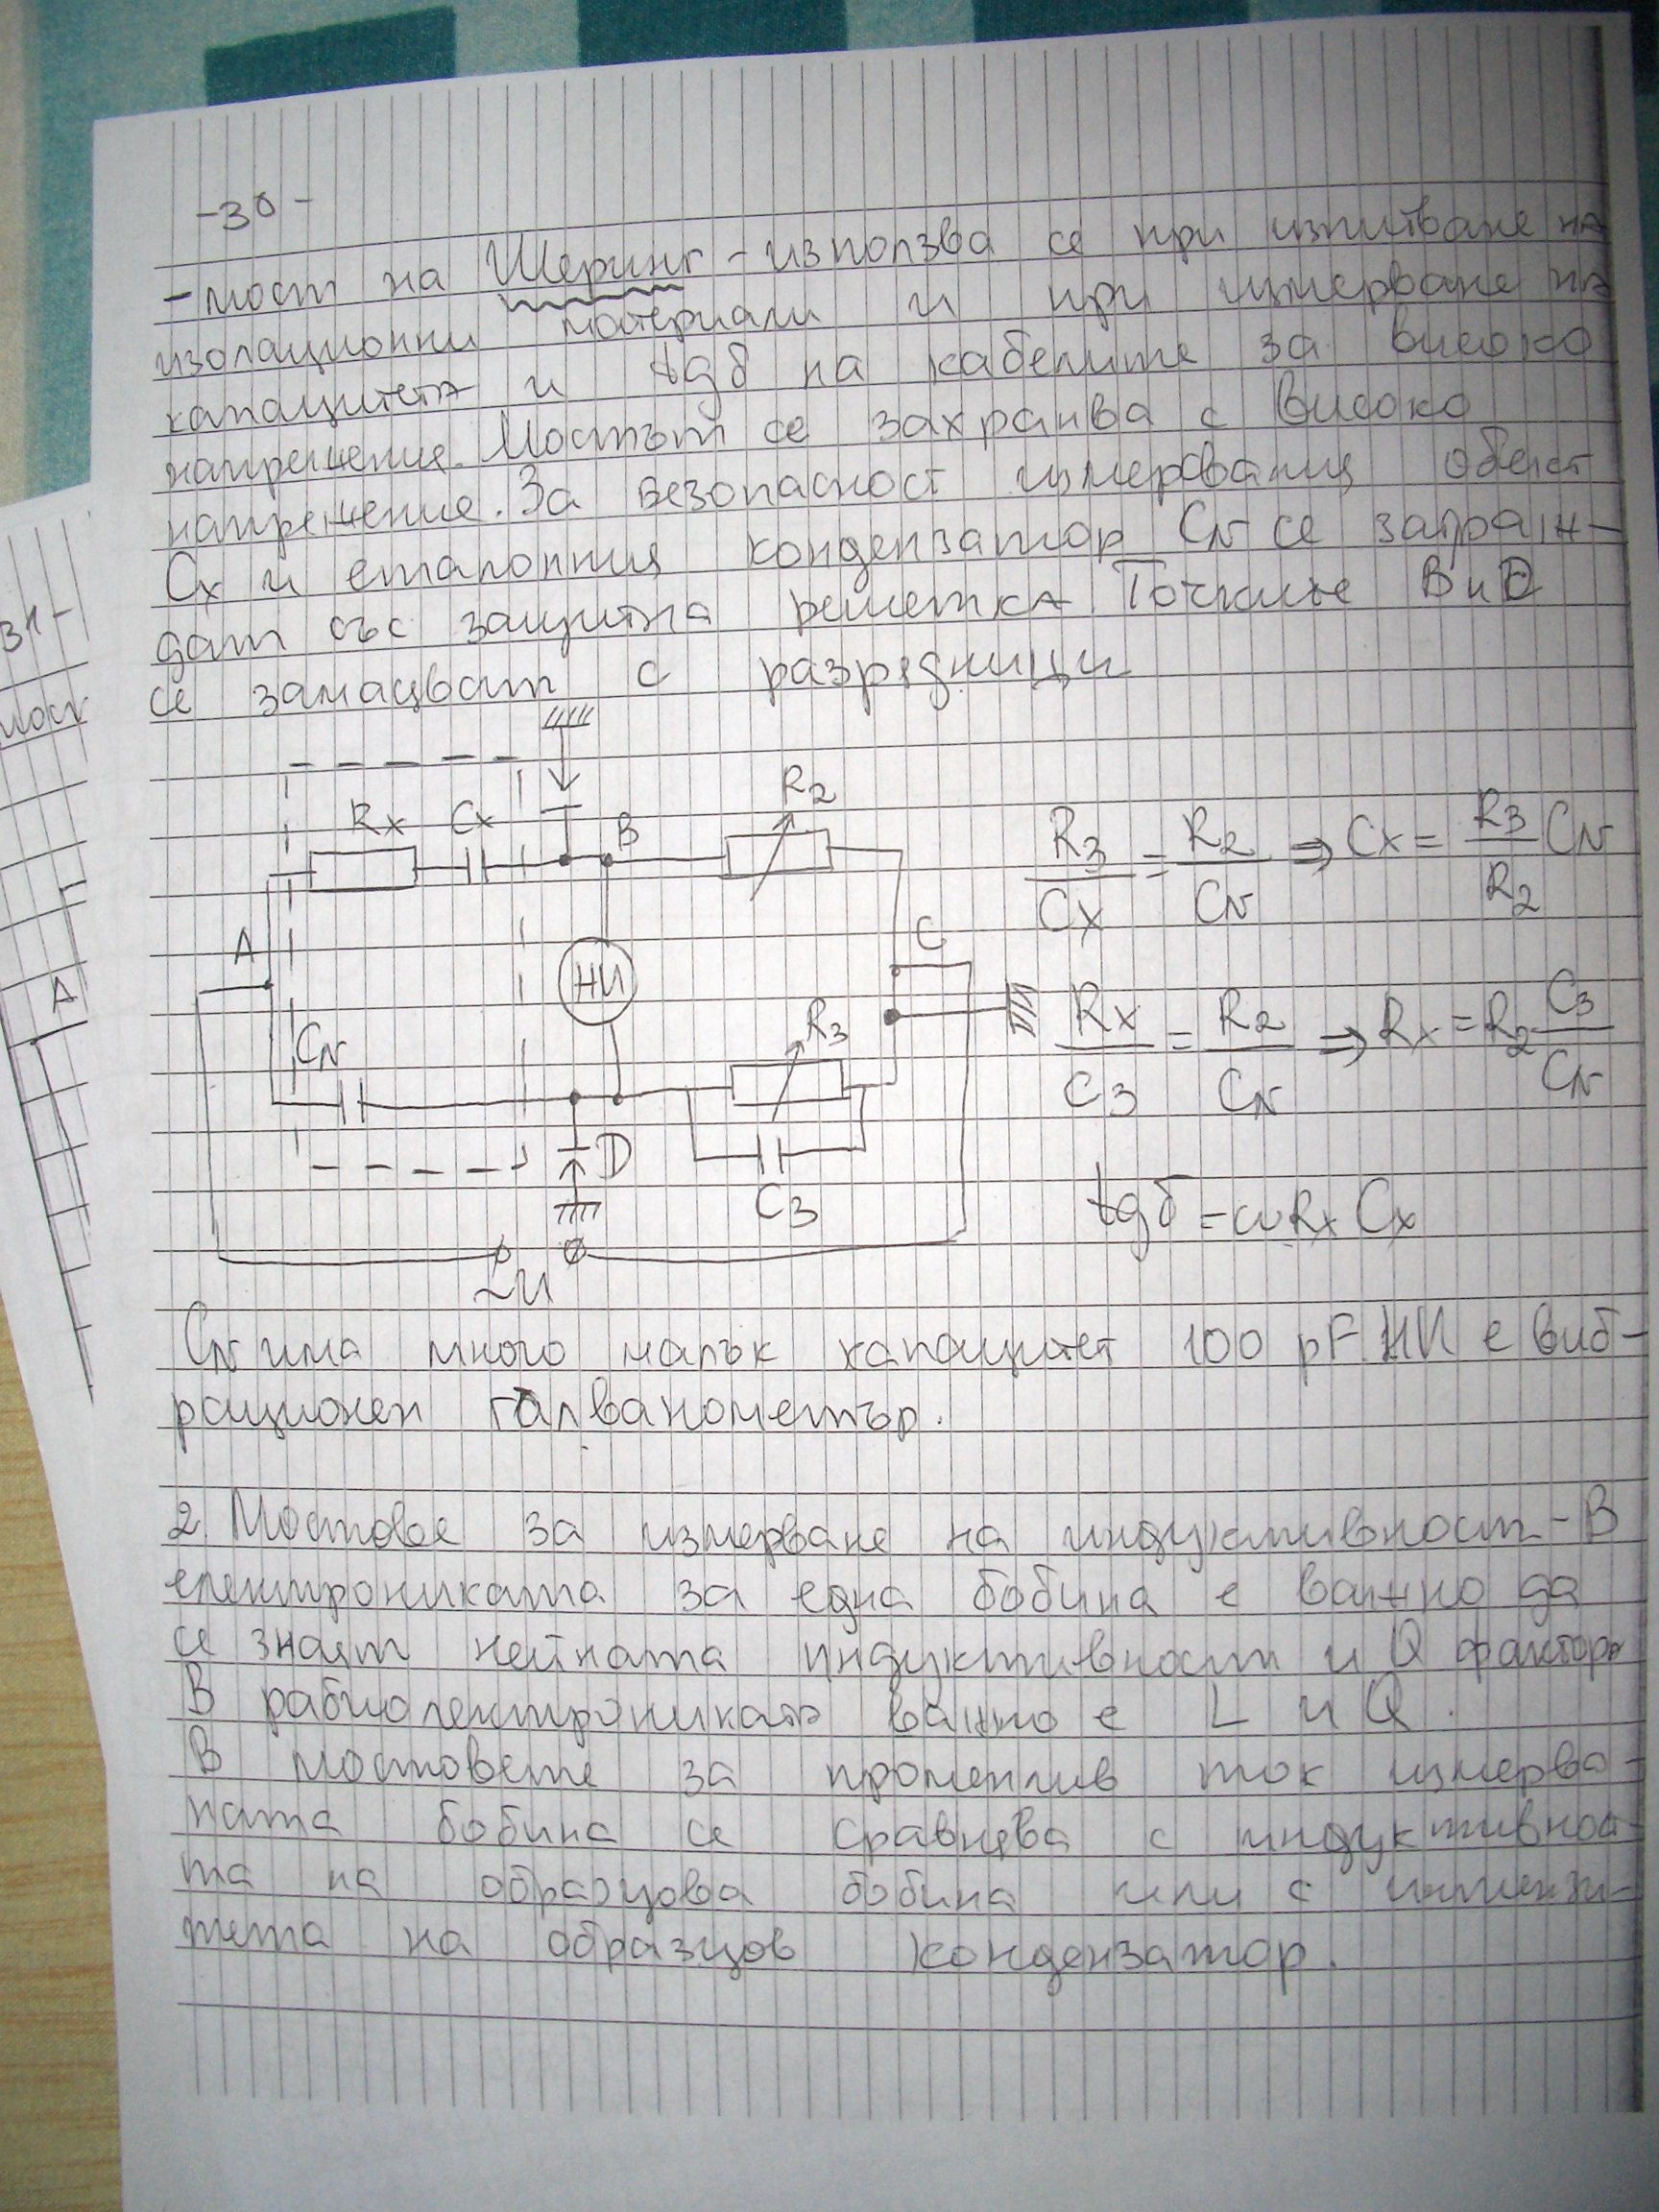 -30-
-мост на Шеринг - използва се при изпитване на
изолационни материали и при измерване на
капацитета и tgδ на кабелите за високо
напрежение. Мостът се захранва с високо
напрежение. За безопасност измервания обект
Cx и еталонния кондензатор CN се заграж-
дат със защитна решетка. Точките B и D
се замацват с разрядници
Rx Cx B R2
R3/Cx = R2/CN ⇒ Cx = R3/R2 CN
A НИ C
CN R3
Rx/C3 = R2/CN ⇒ Rx = R2 C3/CN
D C3
tgδ = ωRxCx
~U
CN има много малък капацитет 100 pF. НИ е виб-
рационен галванометър.
2. Мостове за измерване на индуктивност - В
електрониката за една бобина е важно да
се знаят нейната индуктивност и Q фактора
В радиоелектрониката важно е L и Q.
В мостовете за променлив ток измерва-
ната бобина се сравнява с индуктивност-
та на образцова бобина или с
на образцов кондензатор.
31-
мост
A